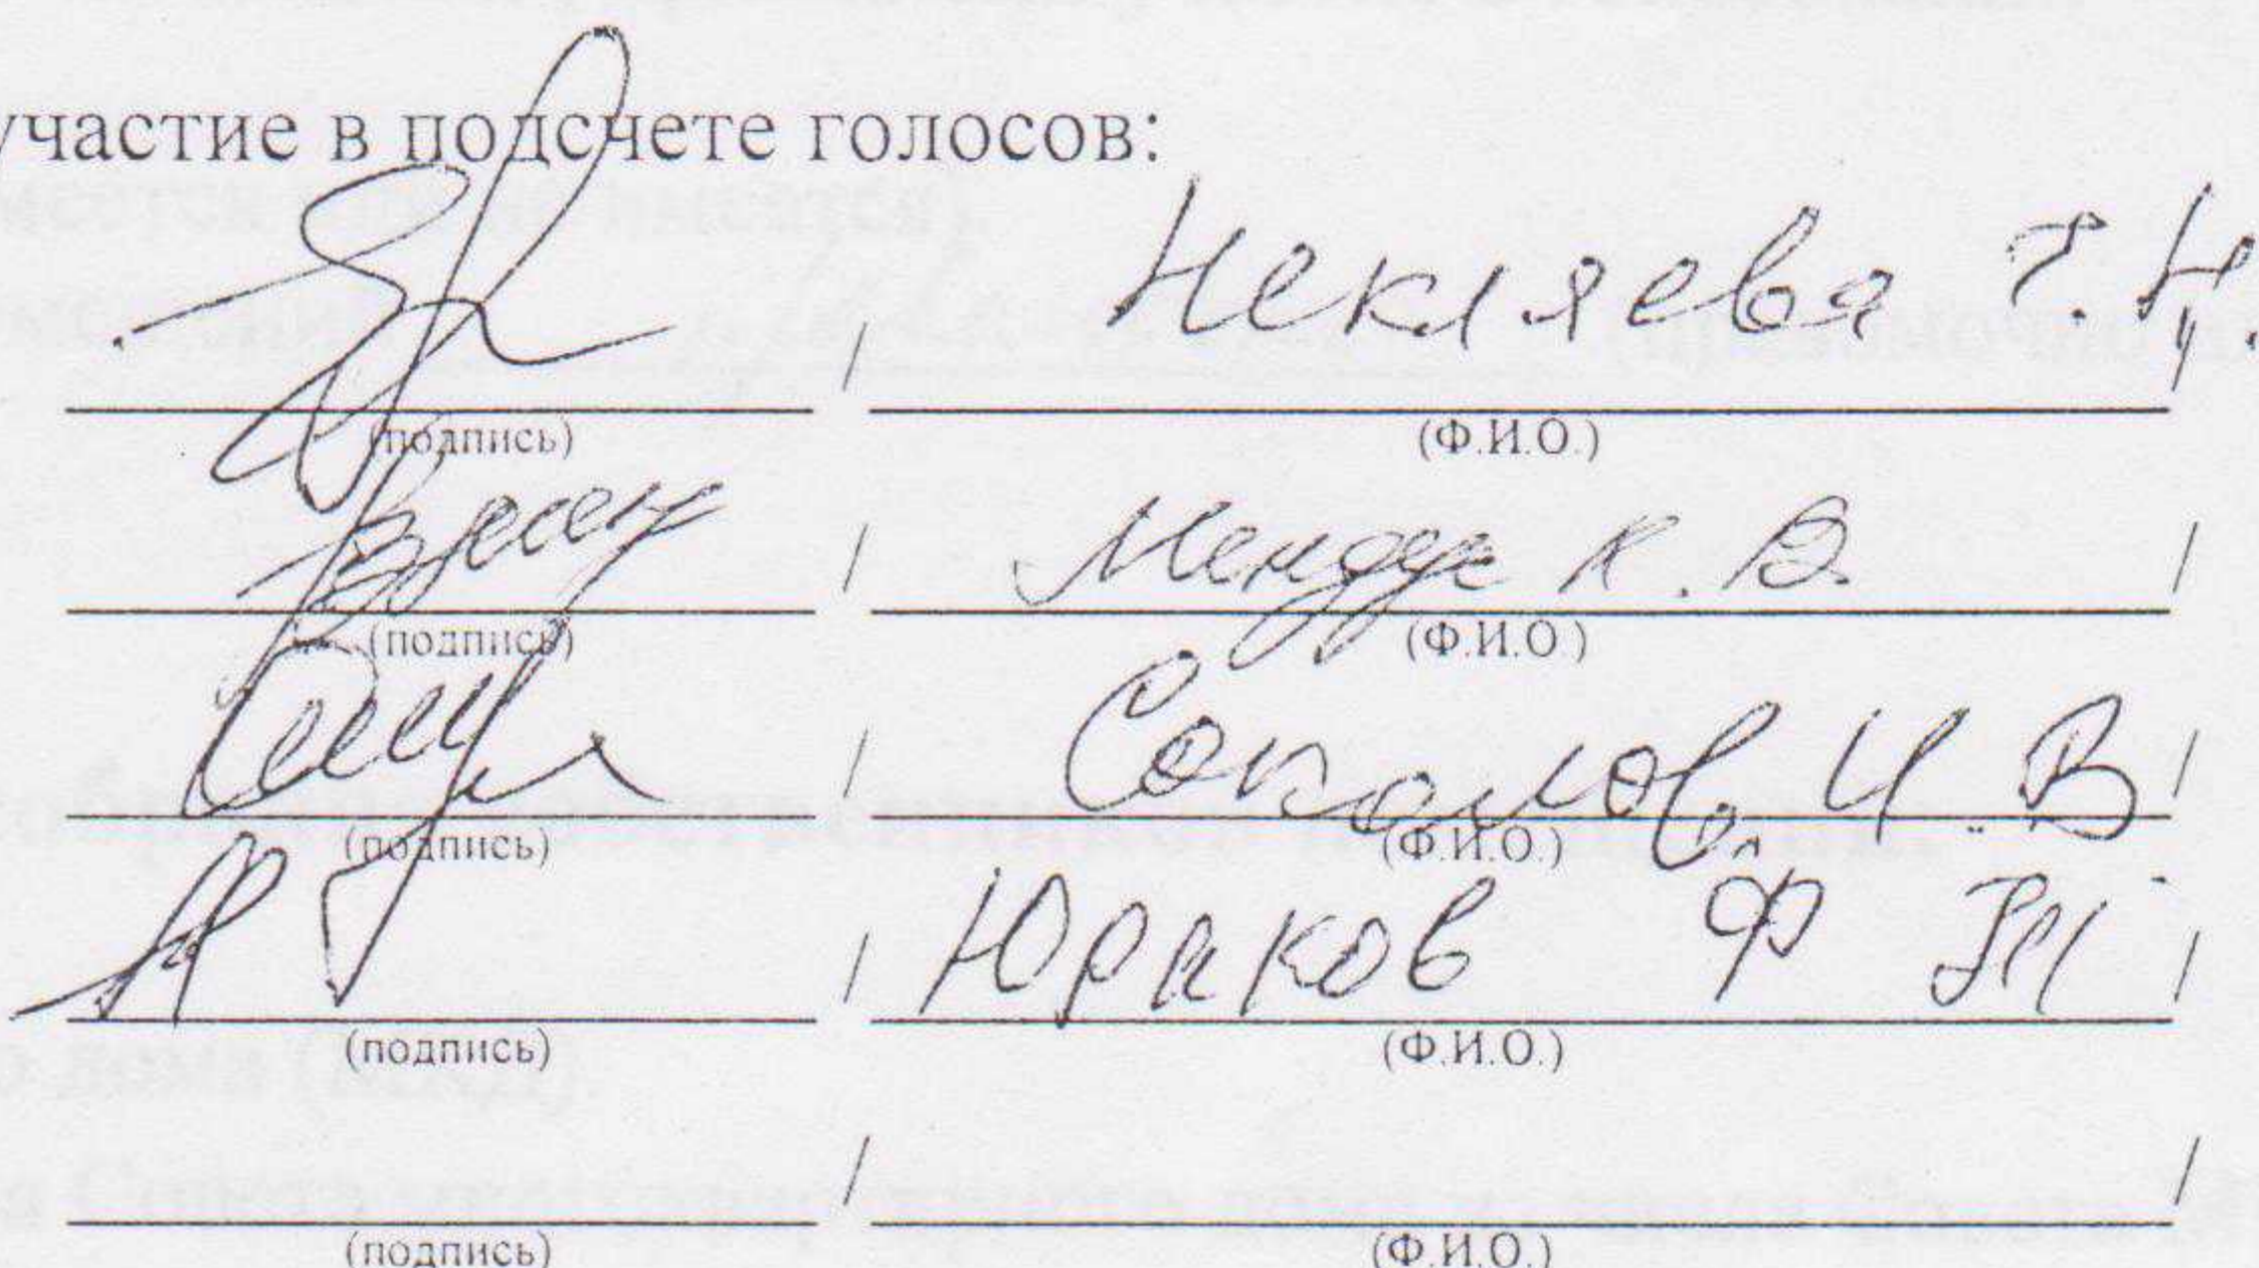 участие в подсчете голосов:
/ Некляева Т. Н.
(подпись) (Ф.И.О.)
/ К. В. /
(подпись) (Ф.И.О.)
/ Соколов И В /
(подпись) (Ф.И.О.)
/ Юраков Ф М /
(подпись) (Ф.И.О.)
/ /
(подпись) (Ф.И.О.)